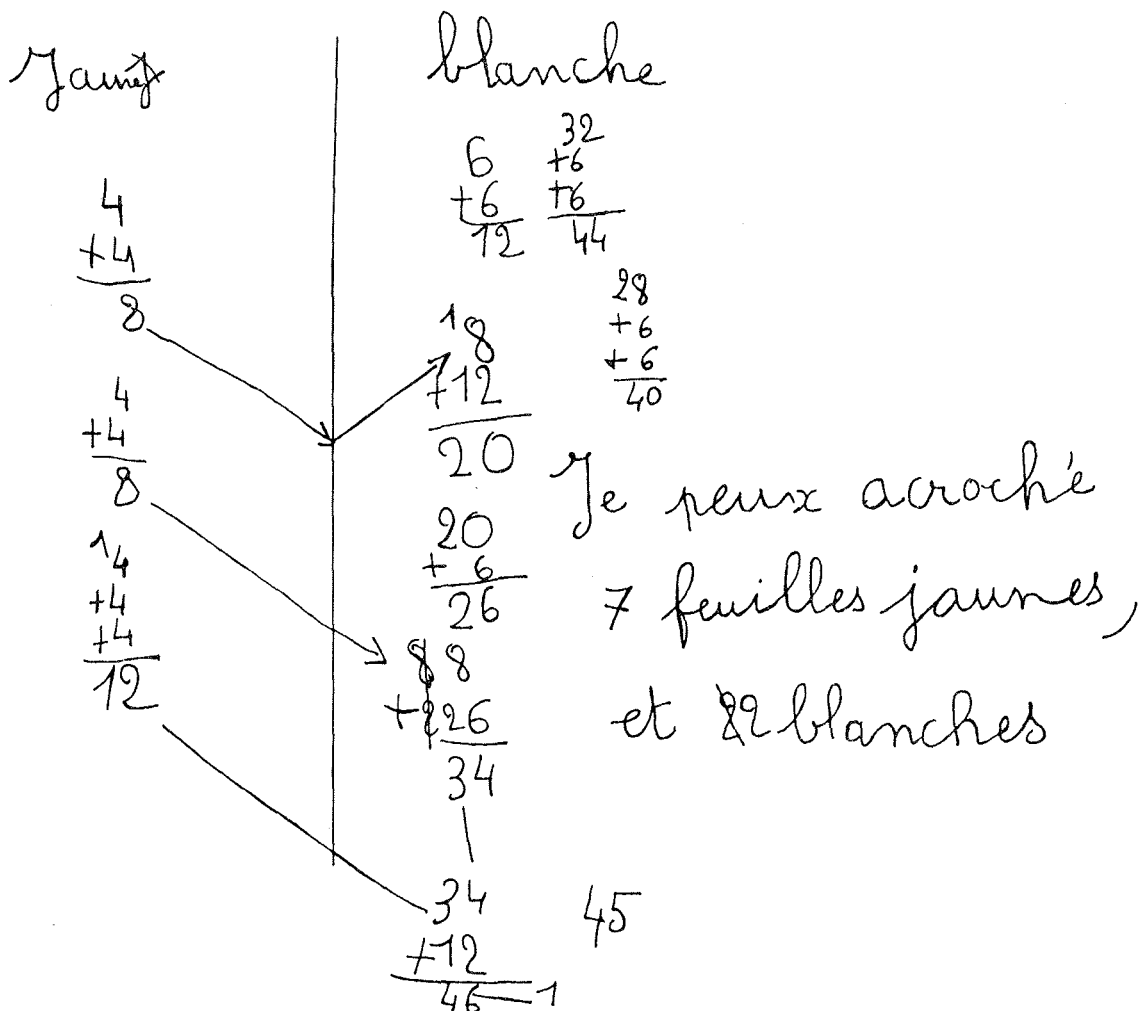 Jaune
blanche
4
+4
8
4
+4
8
14
+4
+4
12
6
+6
12
32
+6
+6
44
28
+6
+6
40
18
+12
20
20
+ 6
26
8
+26
34
34
+12
46 1
45
Je peux acroché
7 feuilles jaunes,
et 2 blanches